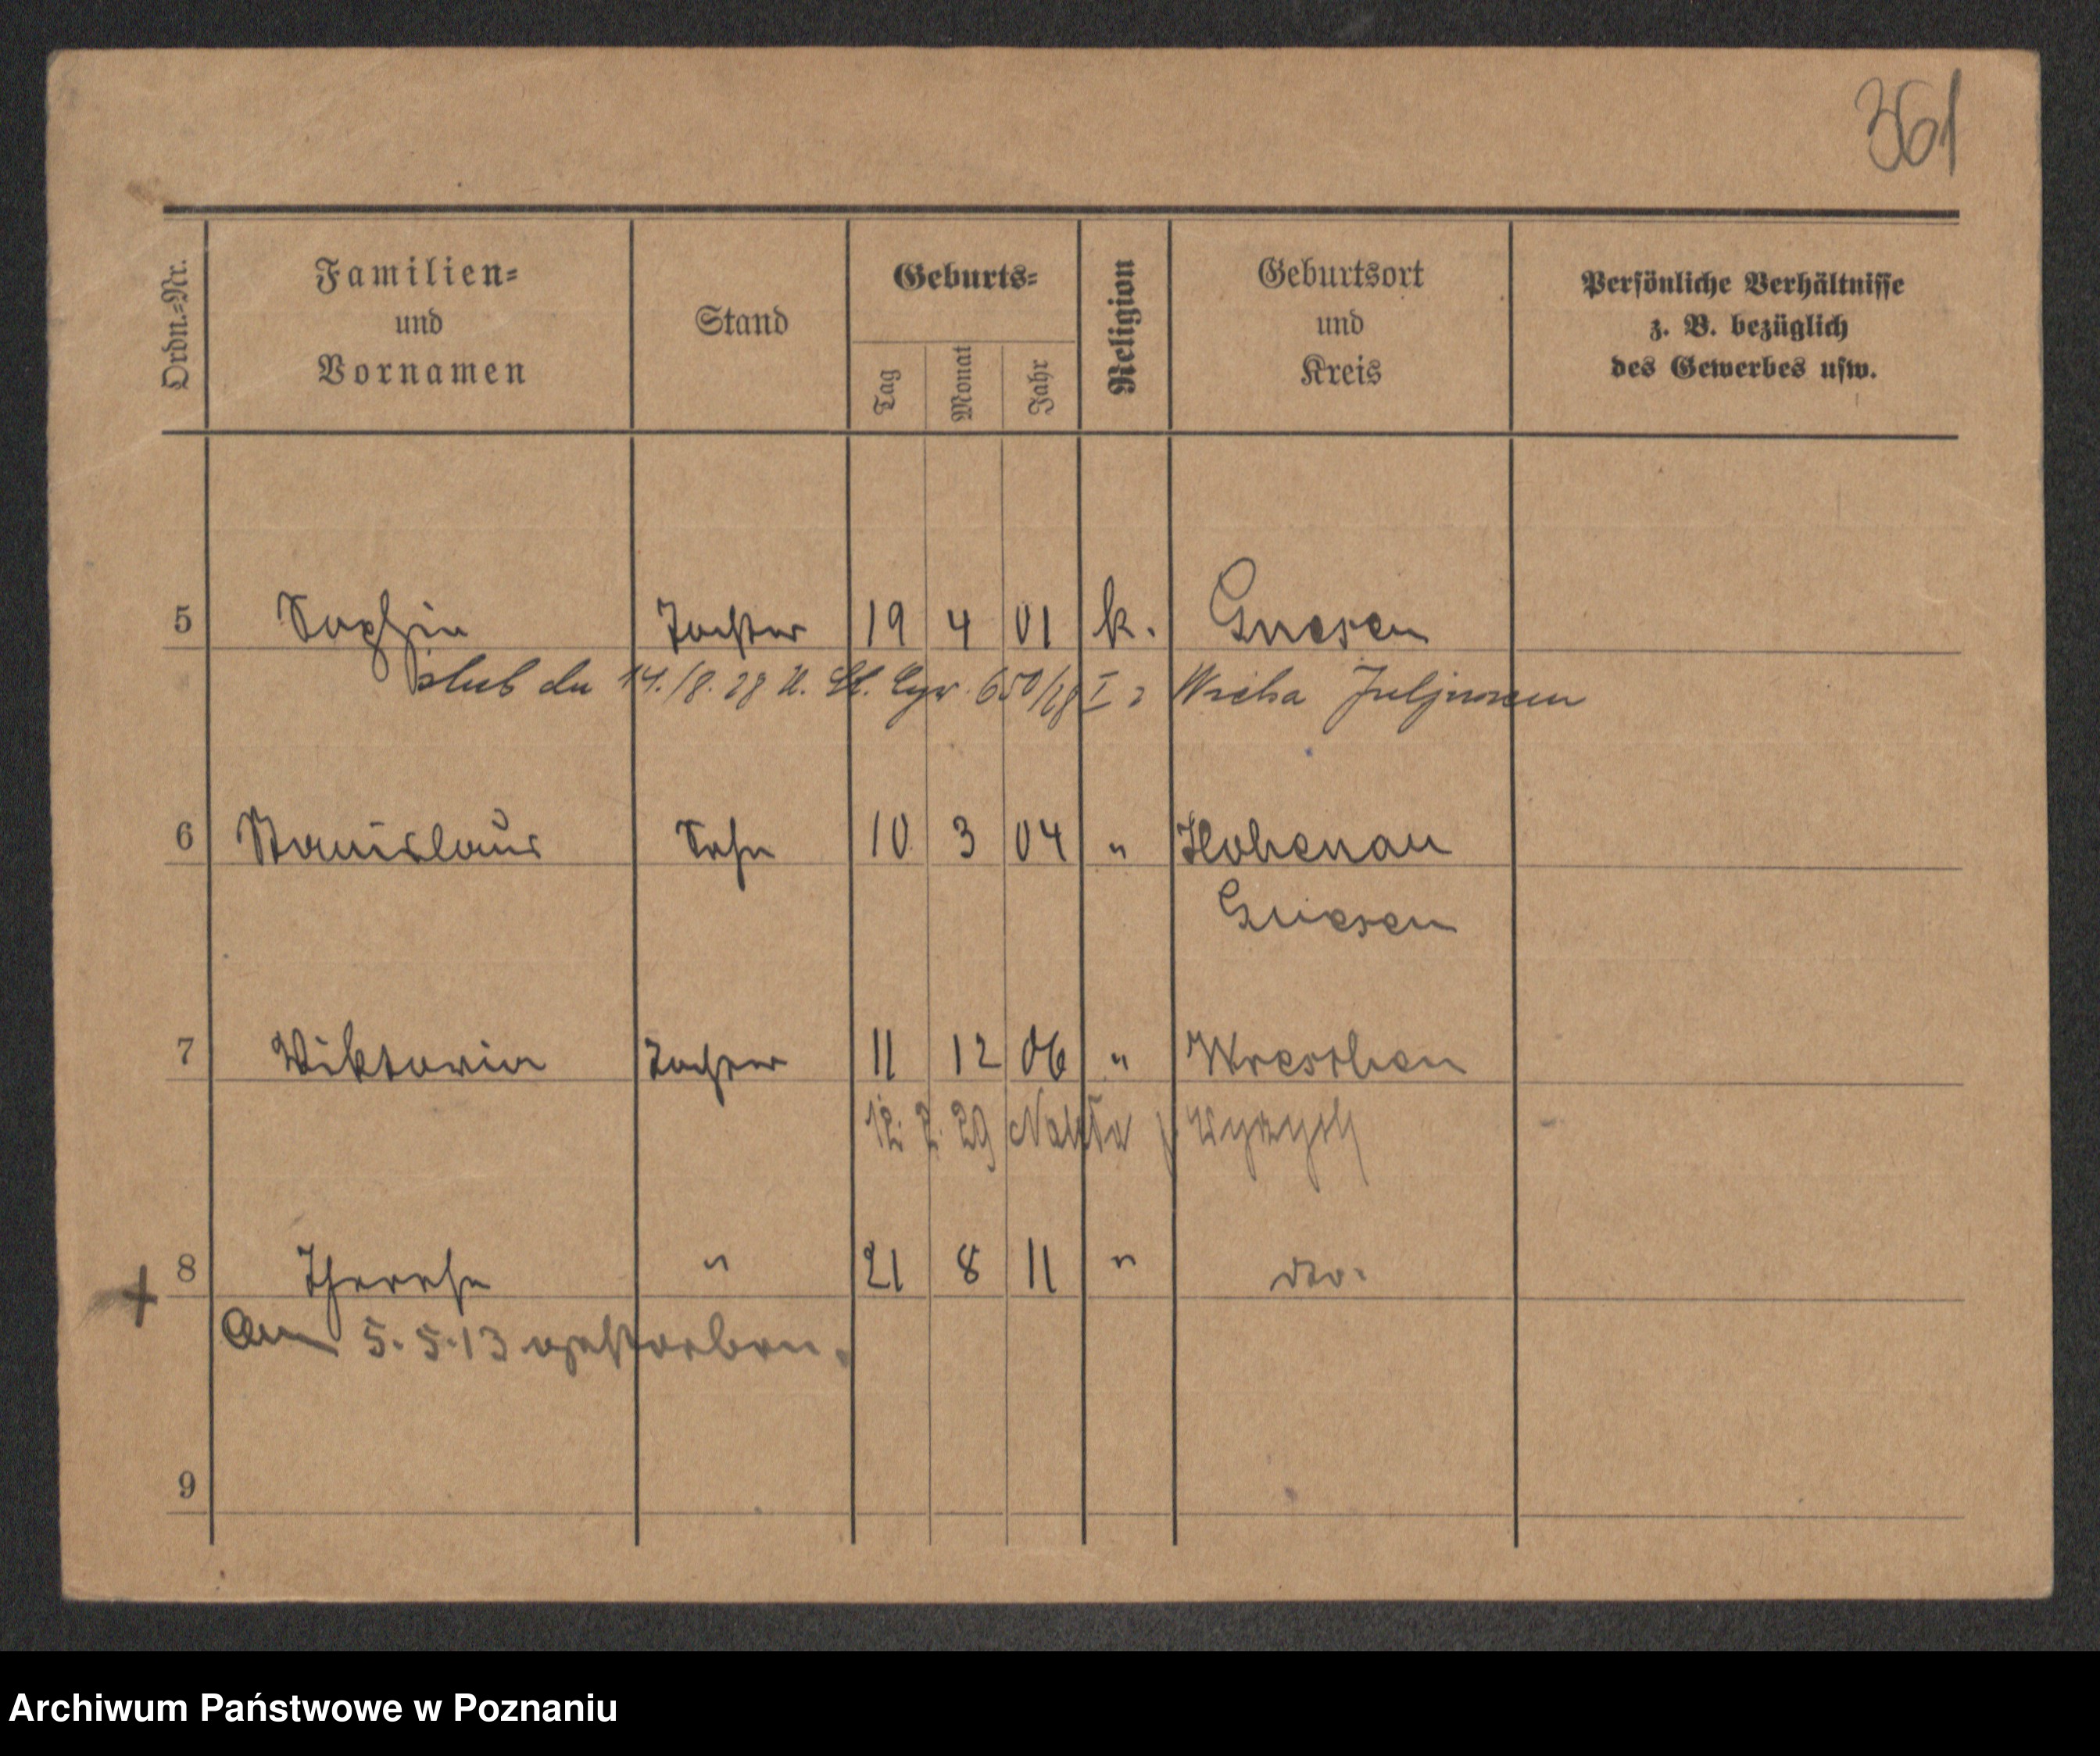 361
Ordn.-Nr.
Familien-
und
Vornamen
Stand
Geburts-
Tag
Monat
Jahr
Religion
Geburtsort
und
Kreis
Persönliche Verhältnisse
z. B. bezüglich
des Gewerbes usw.
5 Sophie Tochter 19 4 01 k. Gnesen
ślub dn 14./8. 28 U. St. Cyw. 650/28 I z Wicha
6 Stanislaus Sohn 10 3 04 " Hohenau
Gnesen
7 Viktoria Tochter 11 12 06 " Wreschen
12. 2. 29 Nakła p. Wyrzysk
8 Therese " 21 8 11 " dto.
+
Am 5.5.13 gestorben.
9
Archiwum Państwowe w Poznaniu